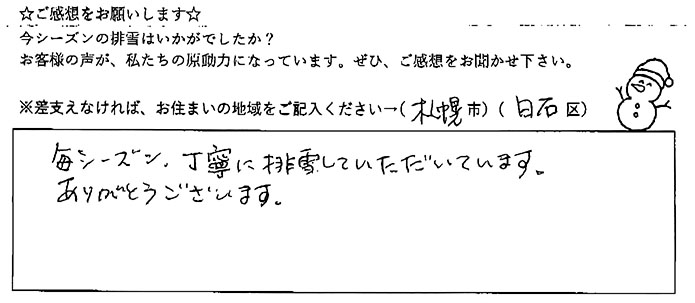 ☆ご感想をお願いします☆
今シーズンの排雪はいかがでしたか？
お客様の声が、私たちの原動力になっています。ぜひ、ご感想をお聞かせ下さい。
※差支えなければ、お住まいの地域をご記入ください→(札幌市)(白石区)
毎シーズン、丁寧に排雪していただいています。
ありがとうございます。